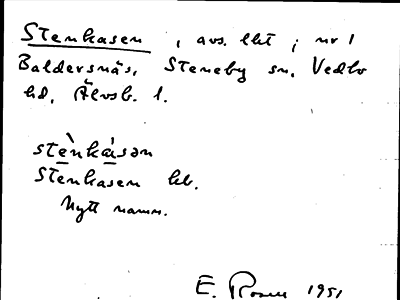 Stenkasen, avs. lht; nr 1
Baldersnäs, Steneby sn, Vedbo
hd, Älvsb. l.
stènkásən
Stenkasen hb.
Nytt namn.
E. Rosell 1951